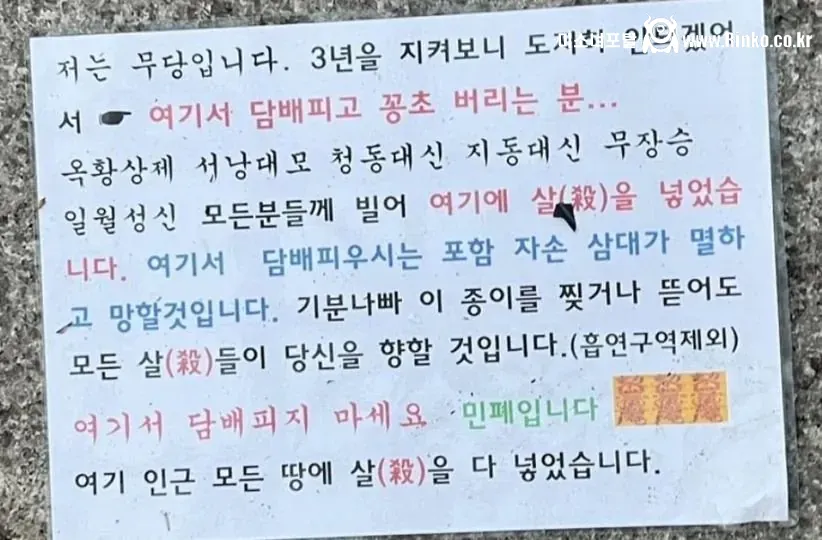 www.Binko.co.kr
저는 무당입니다. 3년을 지켜보니
서 여기서 담배피고 꽁초 버리는 분...
옥황상제 서낭대모 청동대신 지동대신 무장승
일월성신 모든분들께 빌어 여기에 살(殺)을 넣었습
니다. 여기서 담배피우시는 포함 자손 삼대가 멸하
고 망할것입니다. 기분나빠 이 종이를 찢거나 뜯어도
모든 살(殺)들이 당신을 향할 것입니다.(흡연구역제외)
여기서 담배피지 마세요 민폐입니다
여기 인근 모든 땅에 살(殺)을 다 넣었습니다.